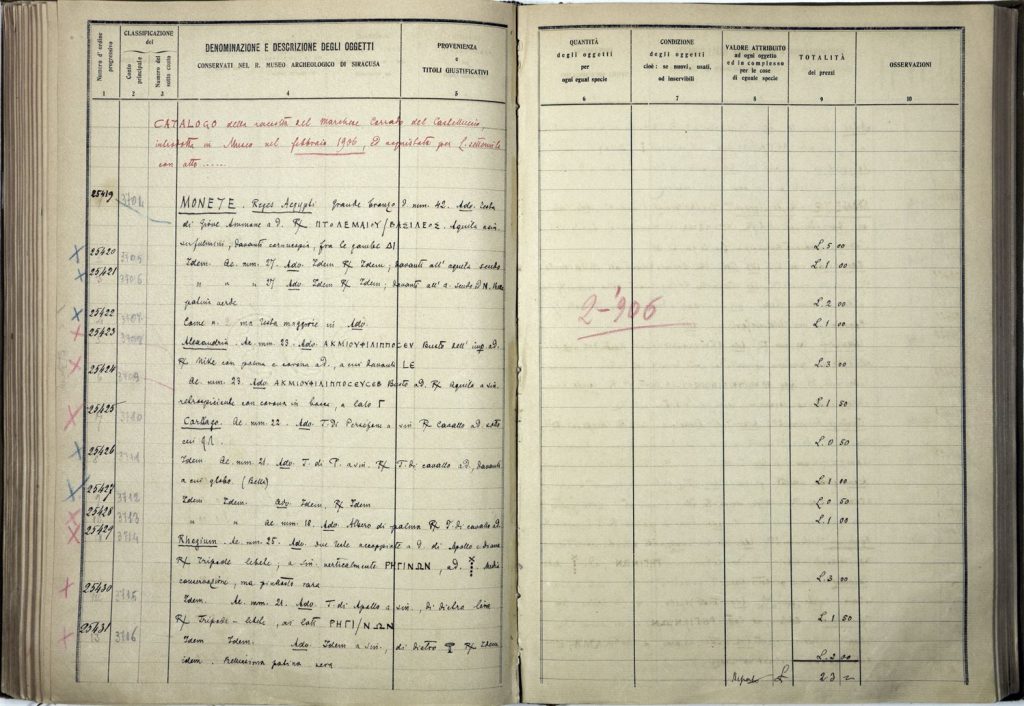 Numero d'ordine progressivo
CLASSIFICAZIONE
del
Conto principale
Numero del sotto conto
DENOMINAZIONE E DESCRIZIONE DEGLI OGGETTI
CONSERVATI NEL R. MUSEO ARCHEOLOGICO DI SIRACUSA
PROVENIENZA
e
TITOLI GIUSTIFICATIVI
1 2 3 4 5
CATALOGO della raccolta del Marchese Corrado del Castelluccio,
introdotta in Museo nel febbraio 1906, ed acquistata per L. settemila
con atto .....
25419 3704 MONETE. Reges Aegypti Grande bronzo D. mm. 42. Adv. Testa
di Giove Ammone a d. R/ ΠΤΟΛΕΜΑΙΟΥ/ΒΑΣΙΛΕΟΣ. Aquila a sin.
sul fulmine; davanti cornucopia, fra le gambe ΔΙ
25420 3705 Idem. Ae. mm. 27. Adv. Idem R/ Idem; davanti all'aquila scudo
25421 3706 " " " 27 Adv. Idem R/ Idem; davanti all'a. scudo
patina verde
25422 3707 Come n. ma testa maggiore in Adv.
25423 3708 Alexandria. Ae. mm. 23. Adv. ΑΚΜΙΟΥΦΙΛΙΠΠΟCΕΥ Busto dell'imp. a d.
R/ Nike con palma e corona a d., a cui davanti LE
25424 3709 Ae. mm. 23. Adv. ΑΚΜΙΟΥΦΙΛΙΠΠΟCΕΥCΕΒ Busto a d. R/ Aquila a sin.
retrospiciente con corona in becco, a lato Γ
25425 3710 Cartago. Ae. mm. 22. Adv. T. di Persefone a sin R/ Cavallo a d. sotto
cui
25426 3711 Idem. Ae. mm. 21. Adv. T. di P. a sin. R/ T. di cavallo a d., davanti
a cui globo. (Bella)
25427 3712 Idem Idem. Adv. Idem, R/ Idem
25428 3713 " " Ae. mm. 18. Adv. Albero di palma R/ T. di cavallo a d.
25429 3714 Rhegium. Ae. mm. 25. Adv. due teste accoppiate a d. di Apollo e Diana
R/ Tripode lebete, a sin. verticalmente ΡΗΓΙΝΩΝ, a d. Media
conservazione, ma piuttosto rara
25430 3715 Idem. Ae. mm. 21. Adv. T. di Apollo a sin., di dietro lira
R/ Tripode-lebete, ai lati ΡΗΓΙ/ΝΩΝ
25431 3716 Idem Idem. Adv. Idem a sin., di dietro R/ Idem
idem. Bellissima patina nera
QUANTITÀ
degli oggetti
per
ogni egual specie
CONDIZIONE
degli oggetti
cioè: se nuovi, usati,
od inservibili
VALORE ATTRIBUITO
ad ogni oggetto
ed in complesso
per le cose
di eguale specie
TOTALITÀ
dei prezzi
OSSERVAZIONI
6 7 8 9 10
L. 5 00
L. 1 00
2-'906
L. 2 00
L. 1 00
L. 3 00
L. 1 50
L. 0 50
L. 1 00
L. 0 50
L. 1 00
L. 3 00
L. 1 50
L. 2 00
Riporto L 23